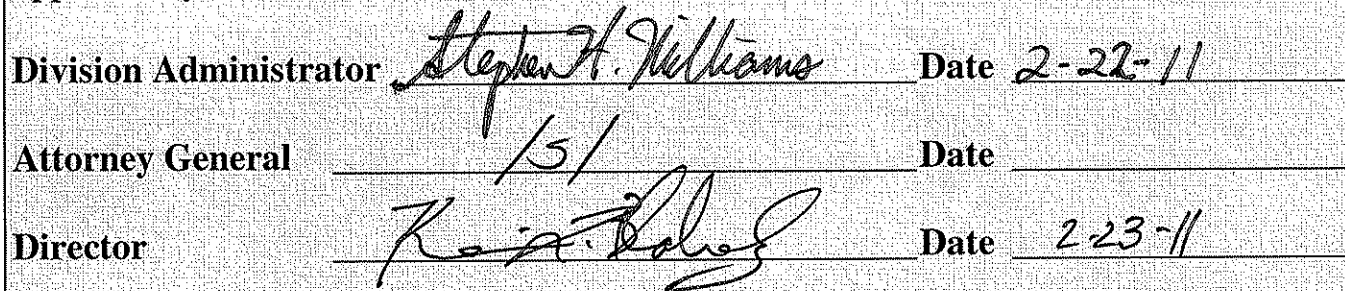 Division Administrator Stephen H. Williams Date 2-22-11
Attorney General /s/ Date
Director Date 2-23-11